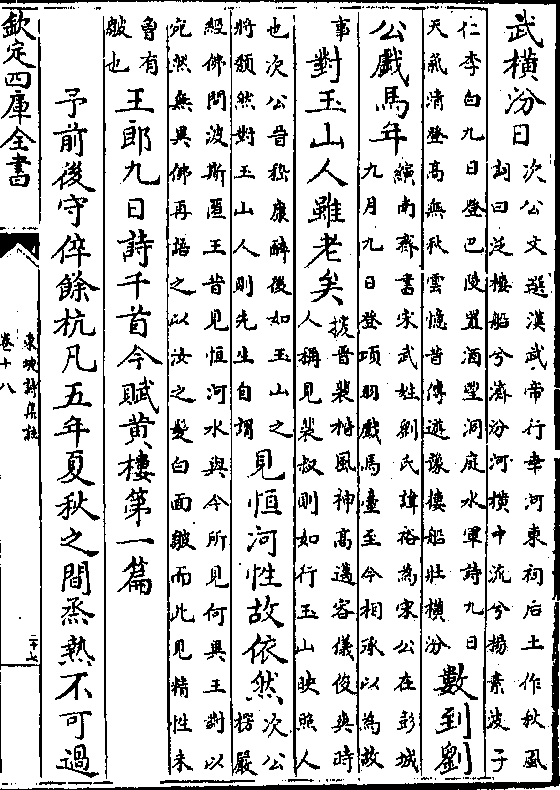 武橫汾日次公文選漢武帝行幸河東祠后土作秋風
詞曰泛樓船兮濟汾河橫中流兮揚素波子
仁李白九日登巴陵置酒望洞庭水軍詩九日
天氣清登高無秋雲憶昔傳遊豫樓船壯橫汾
數到劉
公戲馬年縯南齊書宋武姓劉氏諱裕為宋公在彭城
九月九日登項羽戲馬臺至今相承以為故
事
對玉山人雖老矣援晉裴楷風神高邁容儀俊爽時
人稱見裴叔則如行玉山映照人
也次公昔嵇康醉後如玉山之
將頽然對玉山人則先生自謂
見恒河性故依然次公
楞嚴
經佛問波斯匿王昔見恒河水與今所見何異王對以
宛然無異佛再語之以汝之髮白面皺而此見精性未
魯有
皺也
王郎九日詩千首今賦黃樓第一篇
予前後守倅餘杭凡五年夏秋之間蒸熱不可過
欽定四庫全書
東坡詩集註
卷十八
二十七